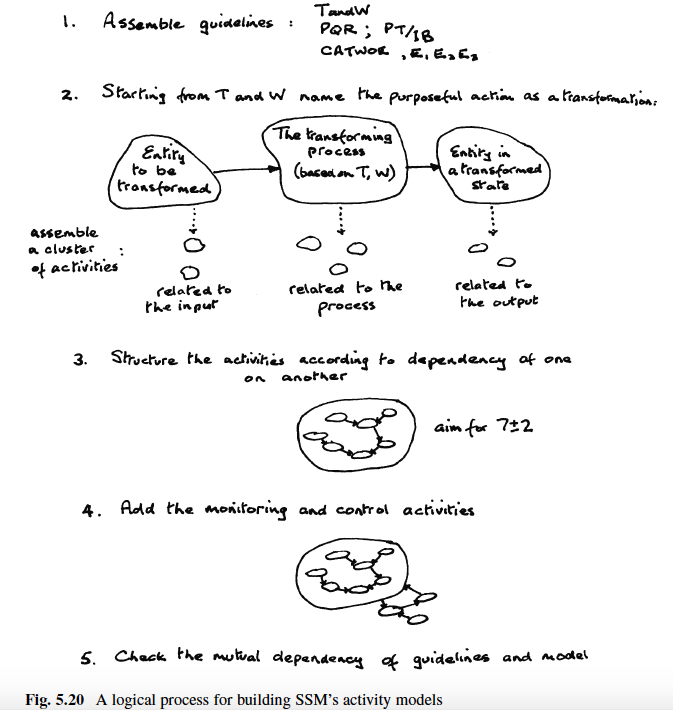 1. Assemble guidelines : T and W
PQR ; PT/IB
CATWOE , E1 E2 E3
2. Starting from T and W name the purposeful action as a transformation:
Entity
to be
transformed
The transforming
process
(based on T, W)
Entity in
a transformed
state
assemble
a cluster :
of activities
related to
the input
related to the
process
related to
the output
3. Structure the activities according to dependency of one
on another
aim for 7±2
4. Add the monitoring and control activities
5. Check the mutual dependency of guidelines and model
Fig. 5.20 A logical process for building SSM's activity models